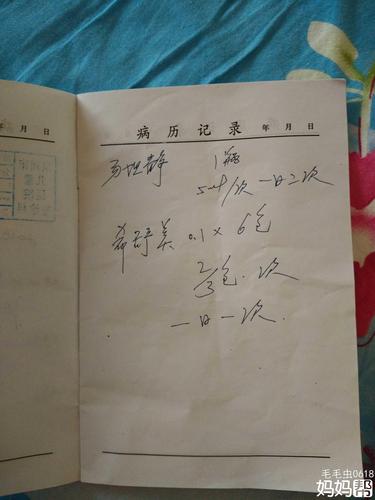 年 月 日
病 历 记 录 年 月 日
易坦静 1瓶
5ml/次 一日二次
希舒美 0.1 × 6包
2/3包 . 次
一日一次.
毛毛虫0618
妈妈帮